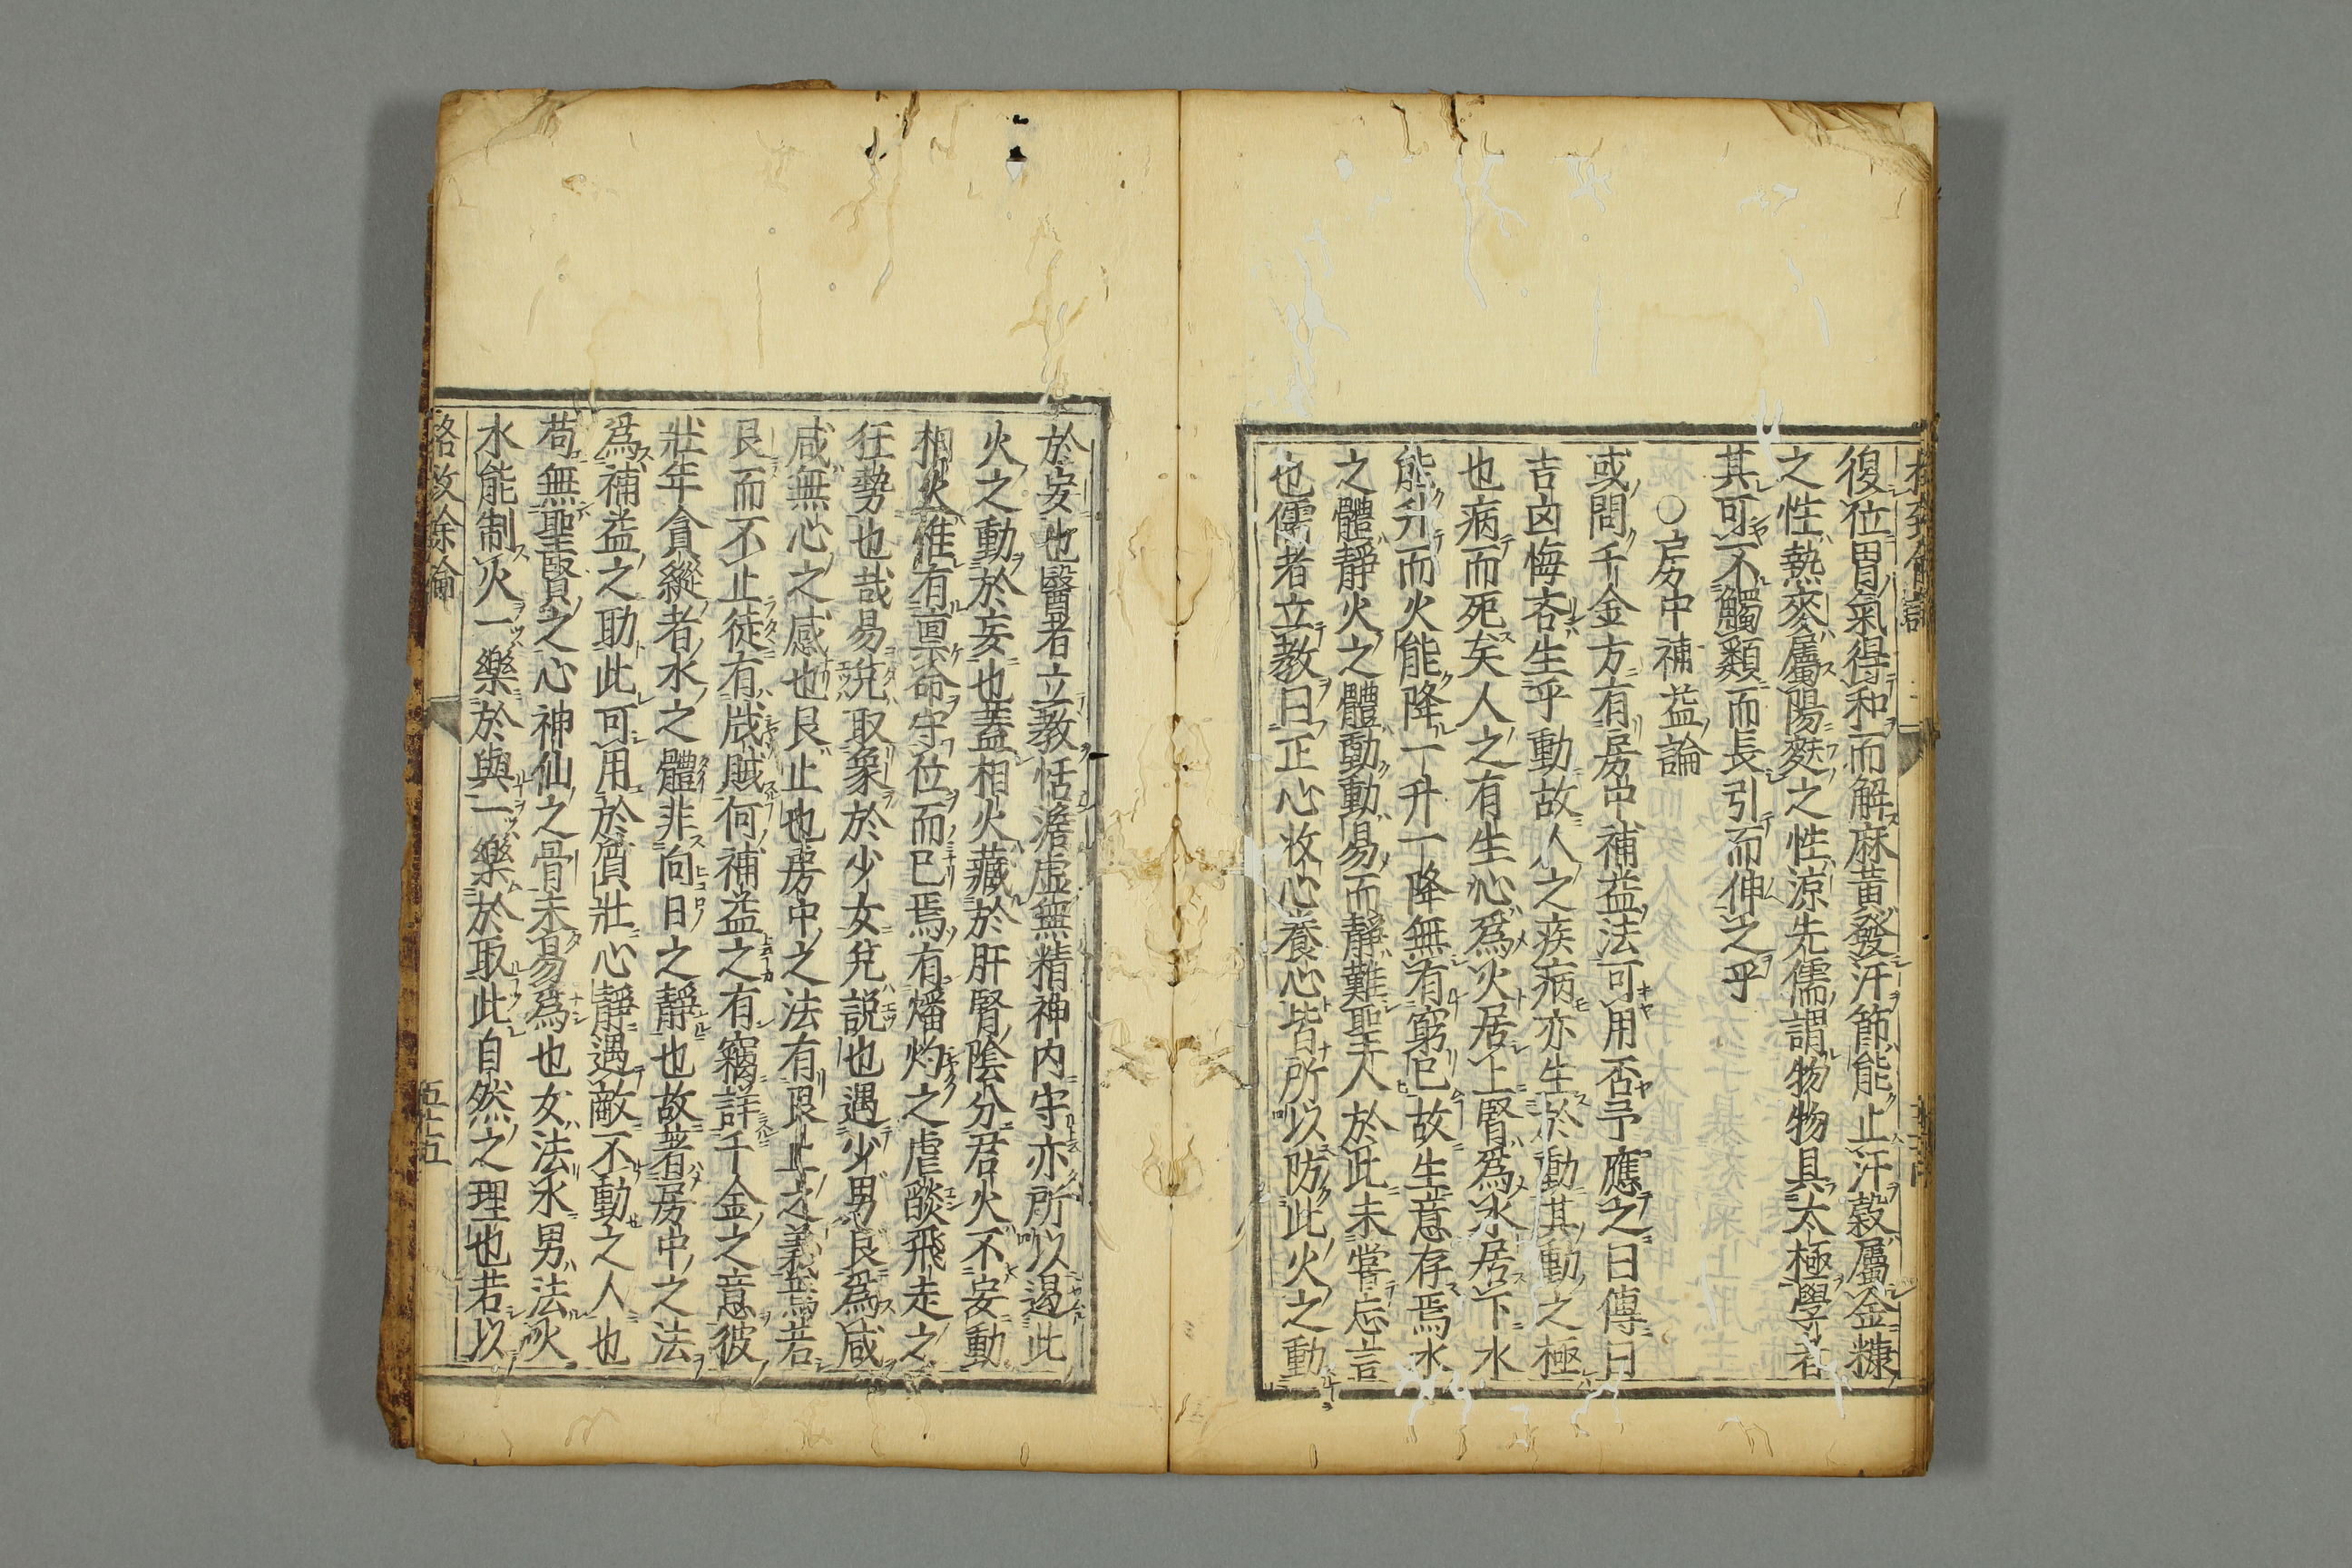 復位胃氣得和而解麻黃發汗節能止汗穀屬金糠
之性熱麥屬陽麩之性凉先儒謂物物具太極學者
其可不觸類而長引而伸之乎
○房中補益論
或問千金方有房中補益法可用否予應之曰傳曰
吉凶悔吝生乎動故人之疾病亦生於動其動之極
也病而死矣人之有生心爲火居上腎爲水居下水
能升而火能降一升一降無有窮已故生意存焉水
之體靜火之體動動易而靜難聖人於此未嘗忘言
也儒者立教曰正心收心養心皆所以防此火之動
於妄也醫者立教恬澹虛無精神内守亦所以遏此
火之動於妄也蓋相火藏於肝腎陰分君火不妄動
相火惟有稟命守位而已焉有燔灼之虐燄飛走之
狂勢也哉易兊取象於少女兊説也遇少男艮爲咸
咸無心之感也艮止也房中之法有艮止之義焉若
艮而不止徒有戕賊何補益之有竊詳千金之意彼
壯年貪縱者水之體非向日之靜也故著房中之法
爲補益之助此可用於質壯心靜遇敵不動之人也
苟無聖賢之心神仙之骨未易爲也女法水男法火
水能制火一樂於與一樂於取此自然之理也若以
格致餘論
五十五